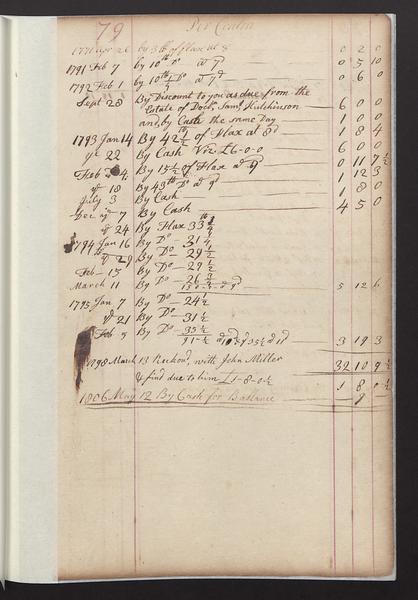 79 Per Contra
1791 Apr 26 by 3 lb of flax at 8 0 2 0
1791 Feb 7 by 10 lb Do at 7d 0 5 10
1792 Feb 1 by 10 1/2 Do at 7d 0 6 0
Sept 28 By Discount to you as due from the
Estate of Doctr Saml Hutchinson 6 0 0
and, by Cash the same Day 1 0 0
1793 Jan 14 By 42 1/2 lb of Flax at 8d 1 8 4
ye 22 By Cash Viz £6-0-0 6 0 0
Feb 4 By 15 1/2 of Flax a 9d 0 11 7 1/2
ye 18 By 43 lb Do a 9d 1 12 3
July 3 By Cash 1 8 0
Dec ye 7 By Cash 4 5 0
ye 24 By Flax 33 lb
1794 Jan 16 By Do 31
ye 29 By Do 29 1/2
Feb 15 By Do 29 1/2
March 11 By Do 26 5 12 6
1795 Jan 7 By Do 24 1/2
ye 21 By Do 31 1/2
Feb 5 By Do 35 1/2
91 1/2 3 19 3
1798 March 13 Reckond, with John Miller 32 10 9 1/2
& find due to him £1-8-0 1/2 1 8 0 1/2
1806 May 12 By Cash for Ballance